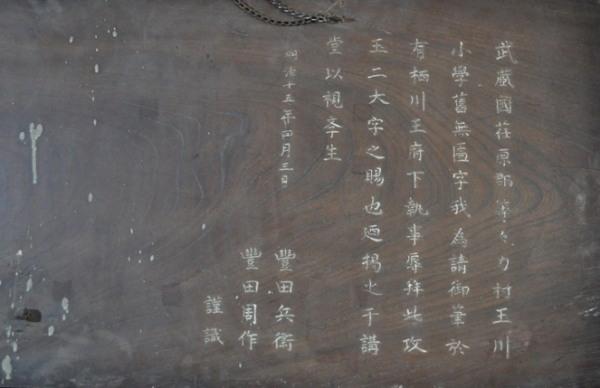 武蔵國荏原郡等々力村玉川
小學舊無匾字我為請御筆於
有栖川王府下執事辱拝此攻
玉二大字之賜也廼掲之于講
堂以視斉生
明治十五年四月三日
豐田兵衛
豐田周作
謹識